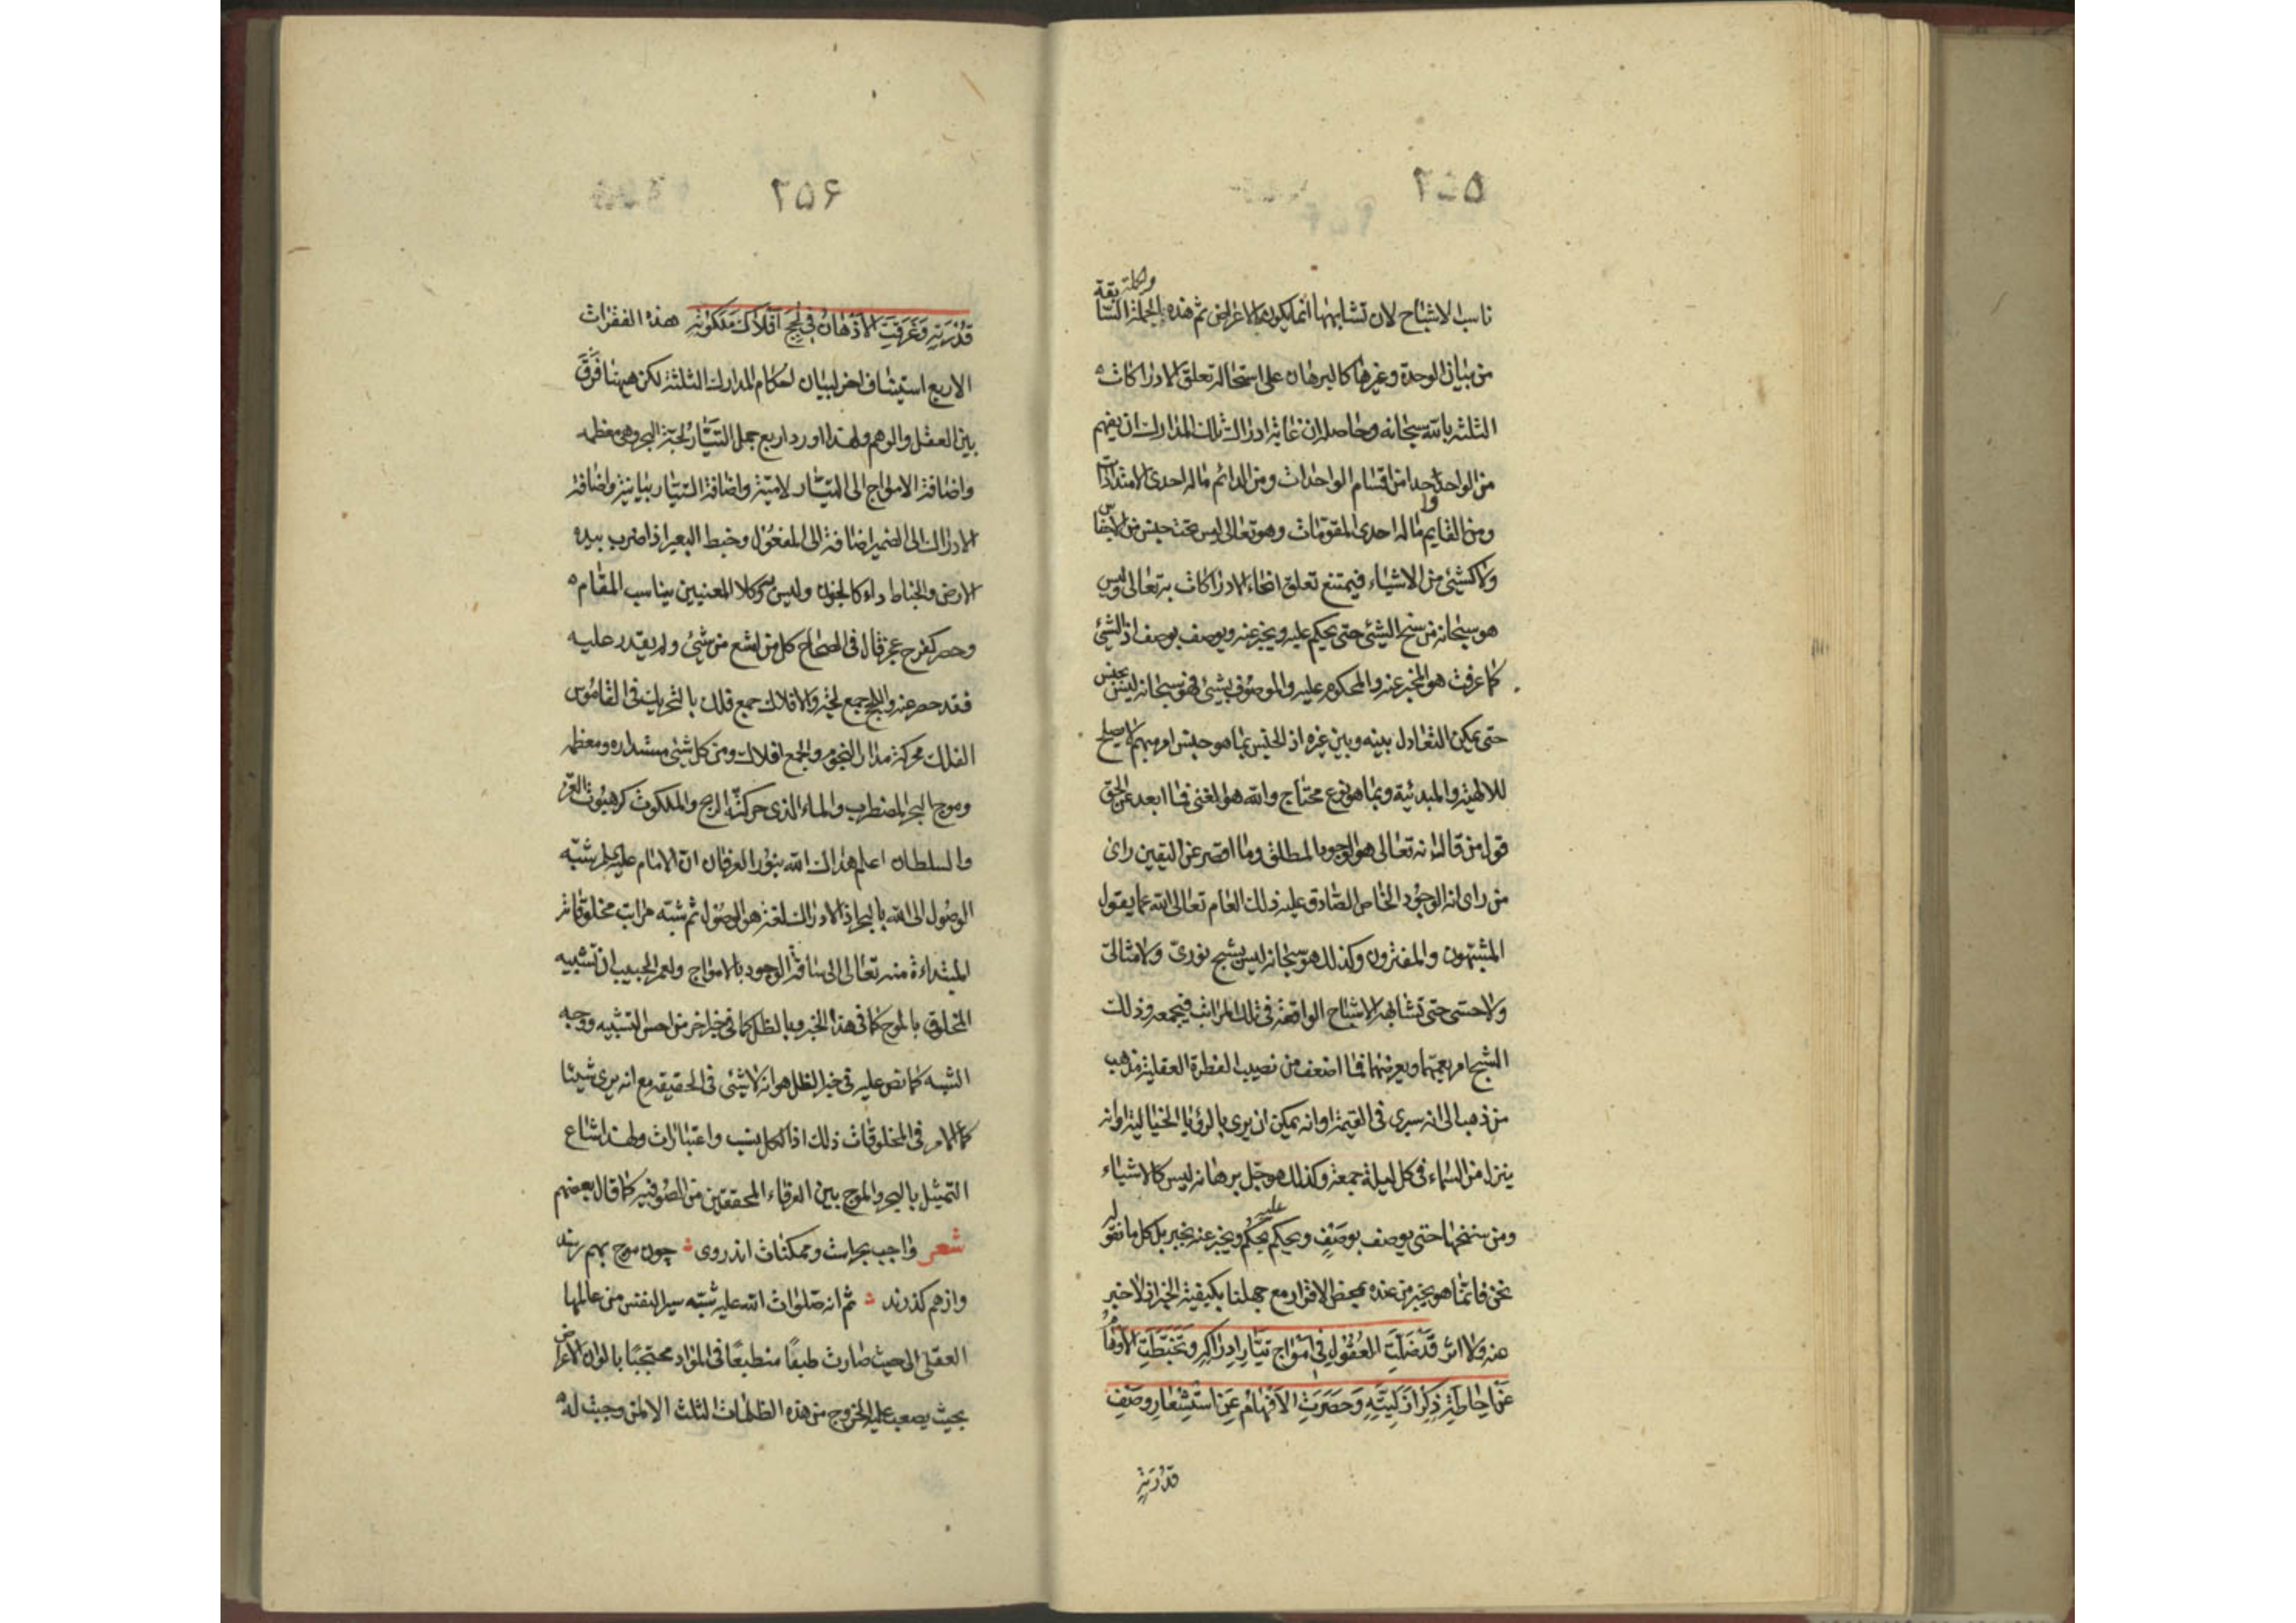 ناسب الاشباح لان تشابهها انما يكون بالاعراض ثم هذه الجملة السابقة
من بيان الوحدة وغيرها كالبرهان على استحالة تعلق الادراكات
الثلثة بالله سبحانه وحاصله ان غاية ادراك تلك المدارك ان يفهم
من الواحد واحدا من اقسام الواحدات ومن الدائم ما له احدى الامتدادات
ومن القايم ما له احدى المقومات وهو تعالى ليس تحت جنس من الاجناس
ولا كشئ من الاشياء فيمتنع تعلق انحاء الادراكات به تعالى وليس
هو سبحانه من سنخ الشئ حتى يحكم عليه ويخبر عنه ويوصف بوصف اذ الشئ
كما عرفت هو المخبر عنه والمحكوم عليه والموصوف بشئ فهو سبحانه ليس بجنس
حتى يمكن التعادل بينه وبين غيره اذ الجنس بما هو جنس امر مبهم لا يصلح
للالهية والمبدئية وبما هو نوع محتاج والله هو الغنى فما ابعد عن الحق
قول من قال انه تعالى هو الوجود المطلق وما اقصر عن اليقين راى
من راى انه الوجود الخاص الصادق عليه ذلك العام تعالى الله عما يقول
المشبهون والمفترون وكذلك هو سبحانه ليس بشبح نورى ولا مثالى
ولا حسى حتى تشابهه الاشباح الواقعة فى تلك المراتب فيجمعه وذلك
الشبح امر يعمهما ويعرضهما فما اضعف من نصيب الفطرة العقلية مذهب
من ذهب الى انه سيرى فى القيمة او انه يمكن ان يرى بالرؤيا الخيالية او انه
ينزل من السماء فى كل ليلة جمعة وكذلك هو جل برهانه ليس كالاشياء
ومن سنخها حتى يوصف بوصف ويحكم عليه بحكم ويخبر عنه بخبر بل كل ما نقوله
نحن فانما هو بخبر من عنده بمحض الاقرار مع جهلنا بكيفية الخبر اذ لا خبر
عنه ولا اثر قَد ضَلَّتِ العُقُولُ فى اَمْوَاجِ تيَّارِ اِدرَاكِهِ وَتَخَبَّطَتِ الاَوْهَامُ
عَنْ اِحَاطَةِ ذِكْرِ اَزَلِيَّتِهِ وَحَصَرَتِ الاَفْهَامُ عَنِ اسْتِشْعَارِ وَصْفِ
قُدْرَتِهِ
۶۵۲
قُدْرَتِهِ وَغَرِقَتِ الاَذْهَانُ فِى لُجَجِ اَفْلاَكِ مَلَكُوتِهِ هذه الفقرات
الاربع استيناف اخر لبيان احكام المدارك الثلثة لكن ههنا فَرَّقَ
بين العقل والوهم ولهذا اورد اربع جمل التيّار لجّة البحر وهى معظمه
واضافة الامواج الى التيّار لامية واضافة التيار بيانية واضافة
الادراك الى الضمير اضافة الى المفعول وخبط البعير اذا ضرب بيده
الارض والخباط داء كالجنون وليس كلا المعنيين يناسب المقام
وحصر كفرح عجز قال فى الصحاح كل من امتنع من شئ ولم يقدر عليه
فقد حصر عنه واللجج جمع لجة والافلاك جمع فلك بالتحريك فى القاموس
الفلك محركة مدار النجوم والجمع افلاك ومن كل شئ مستداره ومعظمه
وموج البحر المضطرب والماء الذى حركته الريح والملكوت كرهبوت العز
والسلطان اعلم هداك الله بنور العرفان ان الامام عليه السلم شبّه
الوصول الى الله بالبحر اذ الادراك لغة هو الوصول ثم شبّه مراتب مخلوقاته
المبتداءة منه تعالى الى ساقة الوجود بالامواج ولعمر الحبيب ان تشبيه
الخلق بالموج كما فى هذا الخبر وبالظل كما فى خبر اخر من احسن التشبيه ووجه
الشبه كما نص عليه فى خبر الظل هو انه لا شئ فى الحقيقة مع انه يرى شيئا
كما الامر فى المخلوقات ذلك اذ الكل نسب واعتبارات ولهذا شاع
التمثيل بالبحر والموج بين العرفاء المحققين من الصوفية كما قال بعضهم
شعر واجب بحراست وممكنات اندر وى چون موج بهم زنند
واز هم كذرند ثم انه صلوات الله عليه شبّه سير النفس من عالمها
العقلى الى حيث صارت طبعًا منطبعًا فى المواد محتجبًا بالوان الاعراض
بحيث يصعب عليه الخروج من هذه الظلمات الثلث الا لمن وجبت له